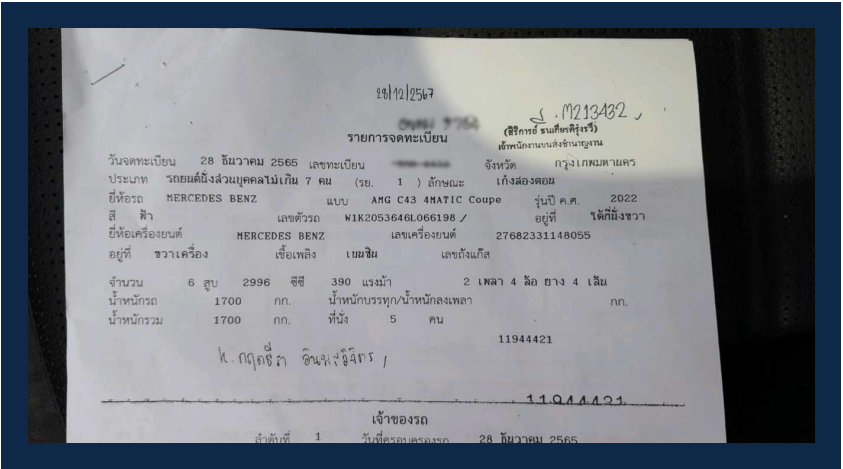 28/12/2567
J. M213432
(สิริการย์ ธนเกียรติรุ่งรวี)
รายการจดทะเบียน
เจ้าพนักงานขนส่งชำนาญงาน
วันจดทะเบียน 28 ธันวาคม 2565 เลขทะเบียน จังหวัด กรุงเทพมหานคร
ประเภท รถยนต์นั่งส่วนบุคคลไม่เกิน 7 คน (รย. 1 ) ลักษณะ เก๋งสองตอน
ยี่ห้อรถ MERCEDES BENZ แบบ AMG C43 4MATIC Coupe รุ่นปี ค.ศ. 2022
สี ฟ้า เลขตัวรถ W1K2053646L066198 อยู่ที่ ใต้ที่นั่งขวา
ยี่ห้อเครื่องยนต์ MERCEDES BENZ เลขเครื่องยนต์ 27682331148055
อยู่ที่ ขวาเครื่อง เชื้อเพลิง เบนซิน เลขถังแก๊ส
จำนวน 6 สูบ 2996 ซีซี 390 แรงม้า 2 เพลา 4 ล้อ ยาง 4 เส้น
น้ำหนักรถ 1700 กก. น้ำหนักบรรทุก/น้ำหนักลงเพลา กก.
น้ำหนักรวม 1700 กก. ที่นั่ง 5 คน
11944421
11944421
เจ้าของรถ
ลำดับที่ 1 วันที่ครอบครองรถ 28 ธันวาคม 2565